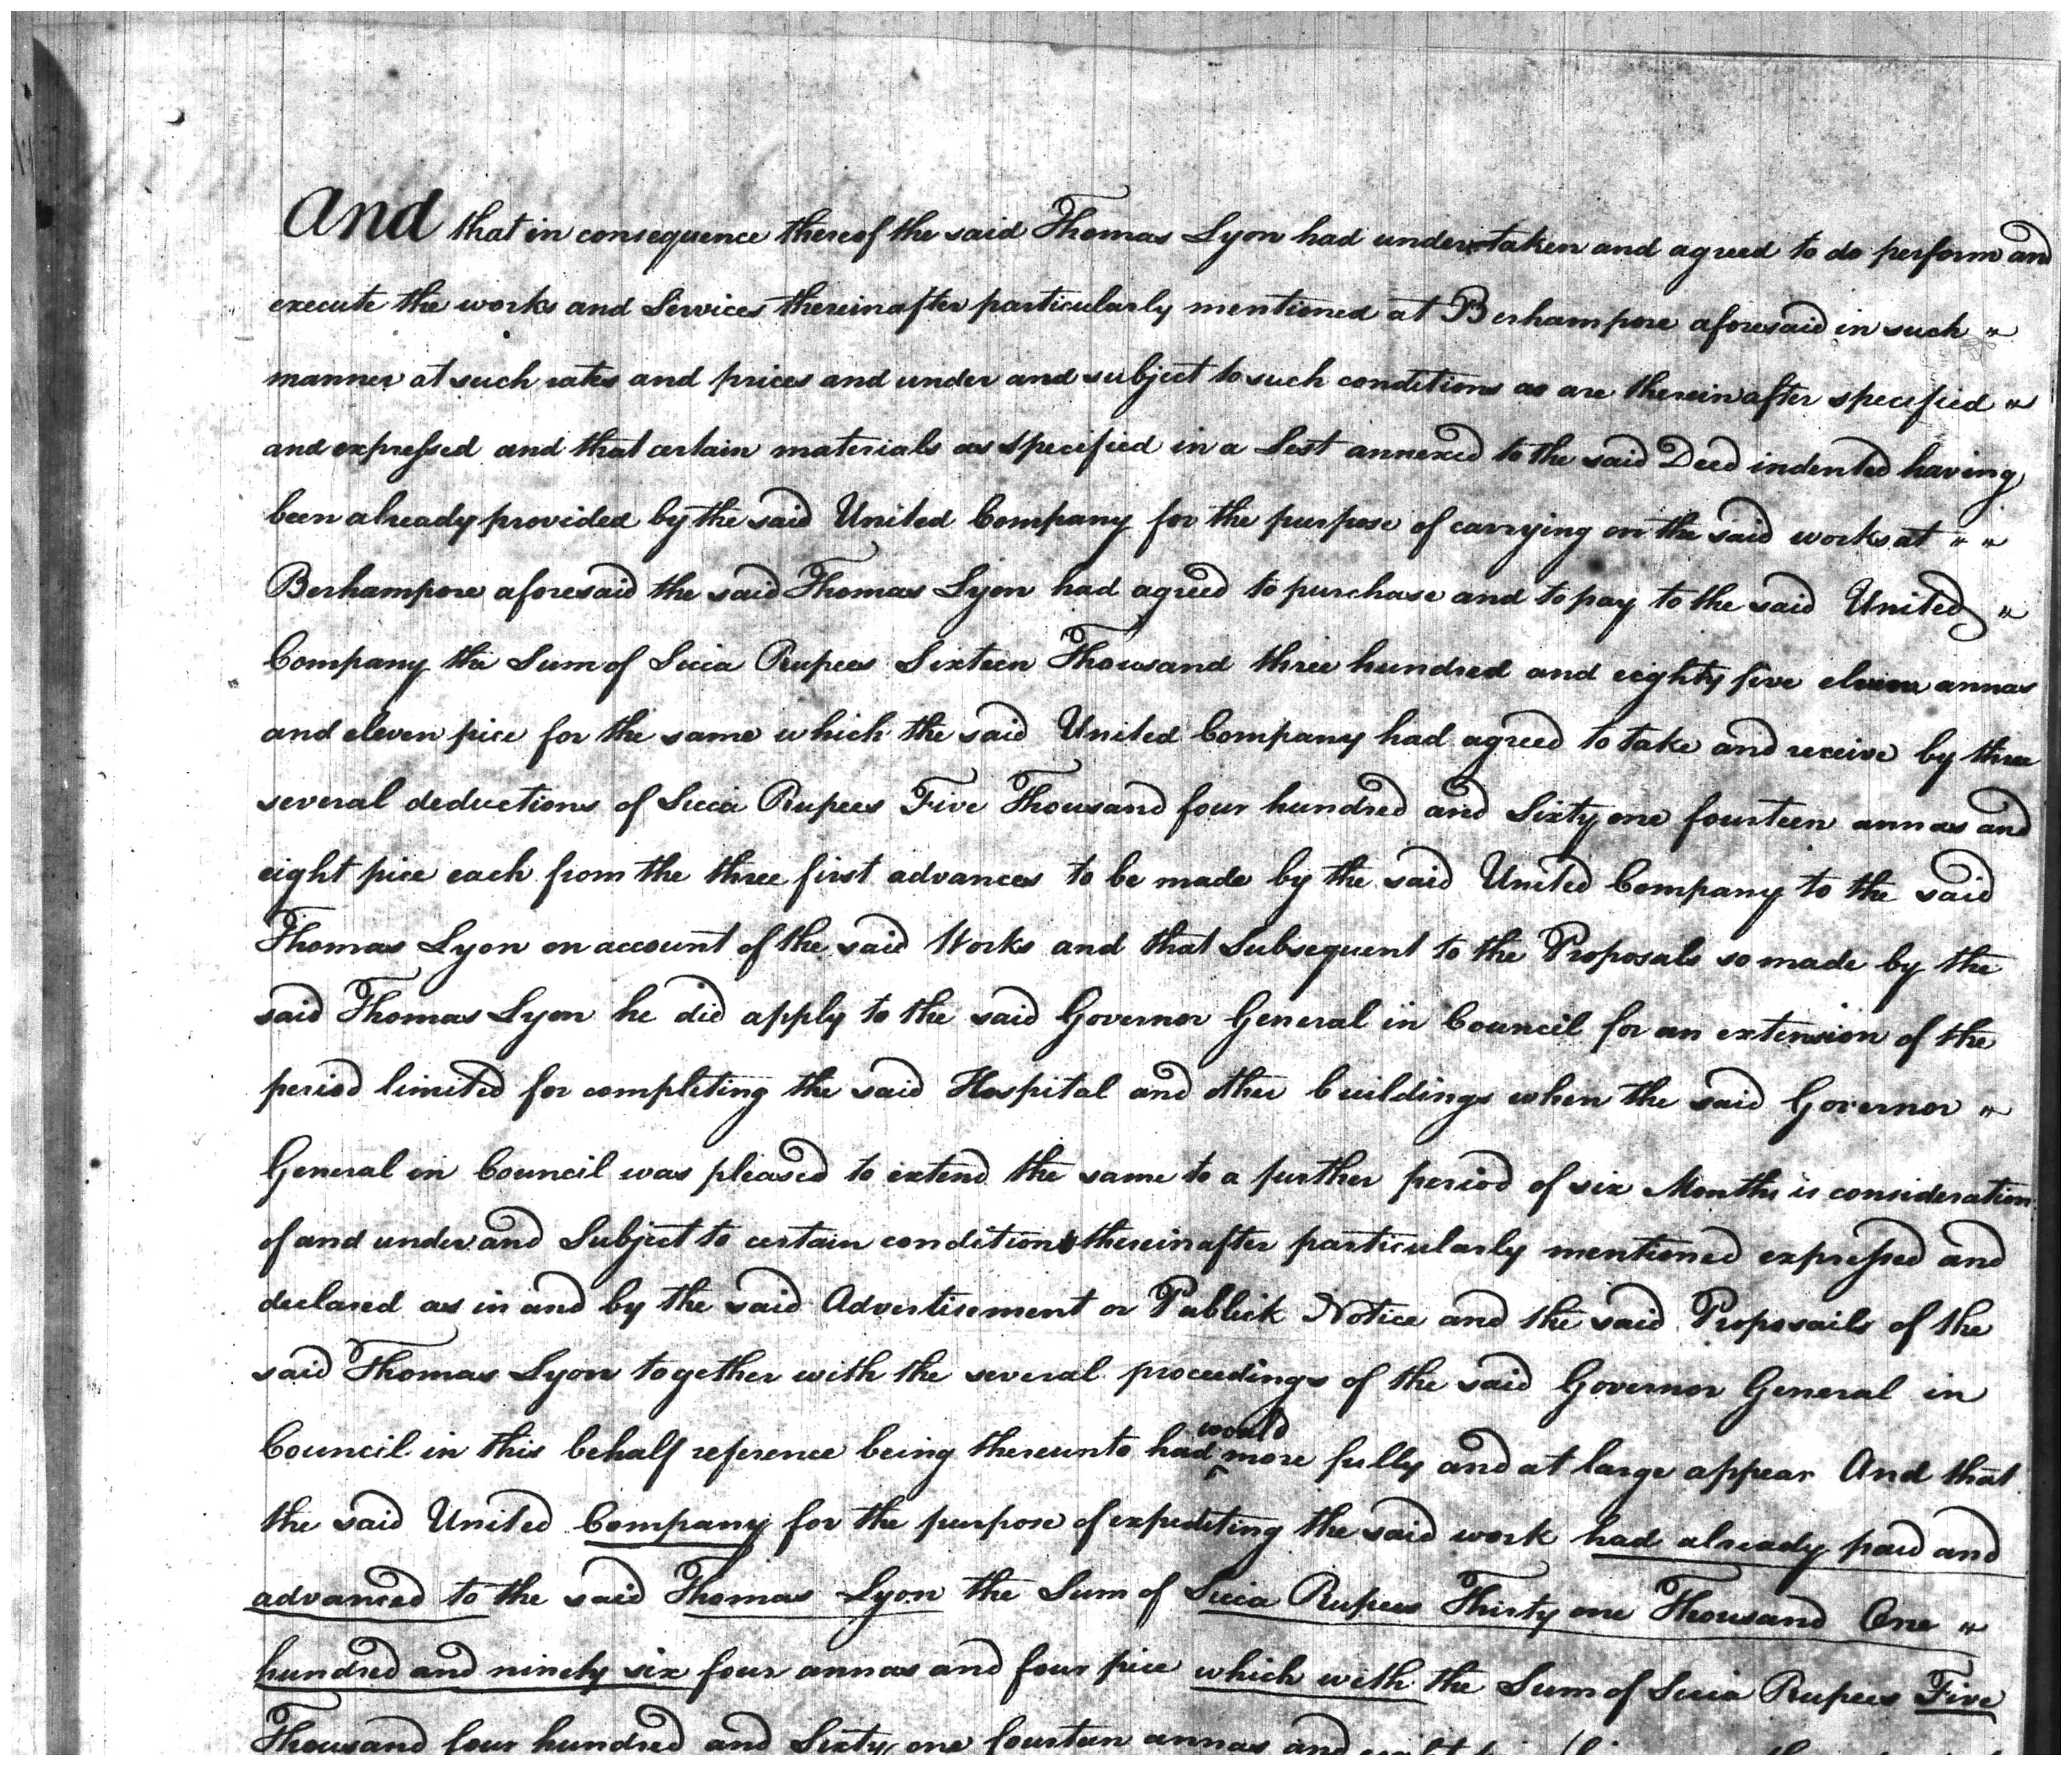 And that in consequence thereof the said Thomas Lyon had undertaken and agreed to do perform and
execute the works and Services thereinafter particularly mentioned at Berhampore aforesaid in such "
manner at such rates and prices and under and subject to such conditions as are thereinafter specified "
and expressed and that certain materials as specified in a List annexed to the said Deed indented having
been already provided by the said United Company for the purpose of carrying on the said works at " "
Berhampore aforesaid the said Thomas Lyon had agreed to purchase and to pay to the said United "
Company the Sum of Sicca Rupees Sixteen Thousand three hundred and eighty five eleven annas
and eleven pice for the same which the said United Company had agreed to take and receive by three
several deductions of Sicca Rupees Five Thousand four hundred and Sixty one fourteen annas and
eight pice each from the three first advances to be made by the said United Company to the said
Thomas Lyon on account of the said Works and that Subsequent to the Proposals so made by the
said Thomas Lyon he did apply to the said Governor General in Council for an extension of the
period limited for completing the said Hospital and other buildings when the said Governor "
General in Council was pleased to extend the same to a further period of six Months in consideration
of and under and Subject to certain conditions thereinafter particularly mentioned expressed and
declared as in and by the said Advertisement or Publick Notice and the said Proposails of the
said Thomas Lyon together with the several proceedings of the said Governor General in
Council in this behalf reference being thereunto had would more fully and at large appear And that
the said United Company for the purpose of expediting the said work had already paid and
advanced to the said Thomas Lyon the Sum of Sicca Rupees Thirty one Thousand One "
hundred and ninety six four annas and four pice which with the Sum of Sicca Rupees Five
Thousand four hundred and Sixty one fourteen annas and eight